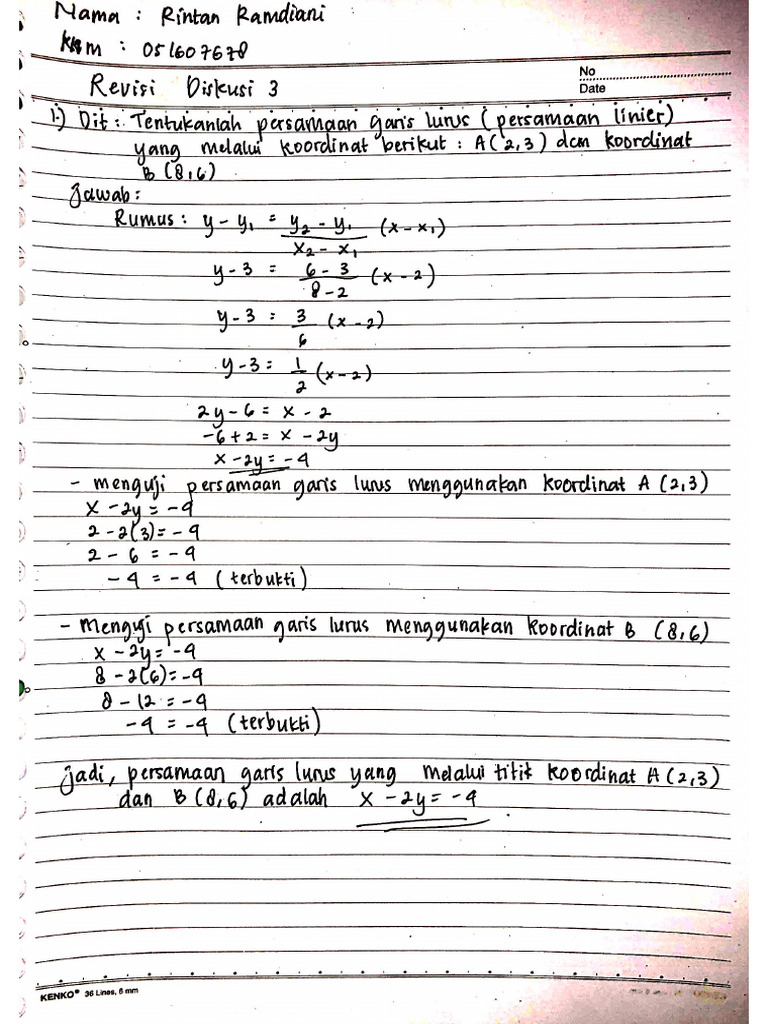 Nama : Rintan Ramdiani
NIM : 051607678
No
Date
Revisi Diskusi 3
1.) Dit : Tentukanlah persamaan garis lurus (persamaan linier)
yang melalui koordinat berikut : A(2,3) dan koordinat
B (8,6)
Jawab :
Rumus : y - y₁ = y₂ - y₁ (x - x₁)
x₂ - x₁
y - 3 = 6 - 3 (x - 2)
8 - 2
y - 3 = 3 (x - 2)
6
y - 3 = 1 (x - 2)
2
2y - 6 = x - 2
-6 + 2 = x - 2y
x - 2y = -4
- menguji persamaan garis lurus menggunakan koordinat A (2,3)
x - 2y = -4
2 - 2(3) = -4
2 - 6 = -4
-4 = -4 (terbukti)
- Menguji persamaan garis lurus menggunakan koordinat B (8,6)
x - 2y = -4
8 - 2(6) = -4
8 - 12 = -4
-4 = -4 (terbukti)
Jadi, persamaan garis lurus yang melalui titik koordinat A (2,3)
dan B (8,6) adalah x - 2y = -4
KENKO® 36 Lines, 6 mm